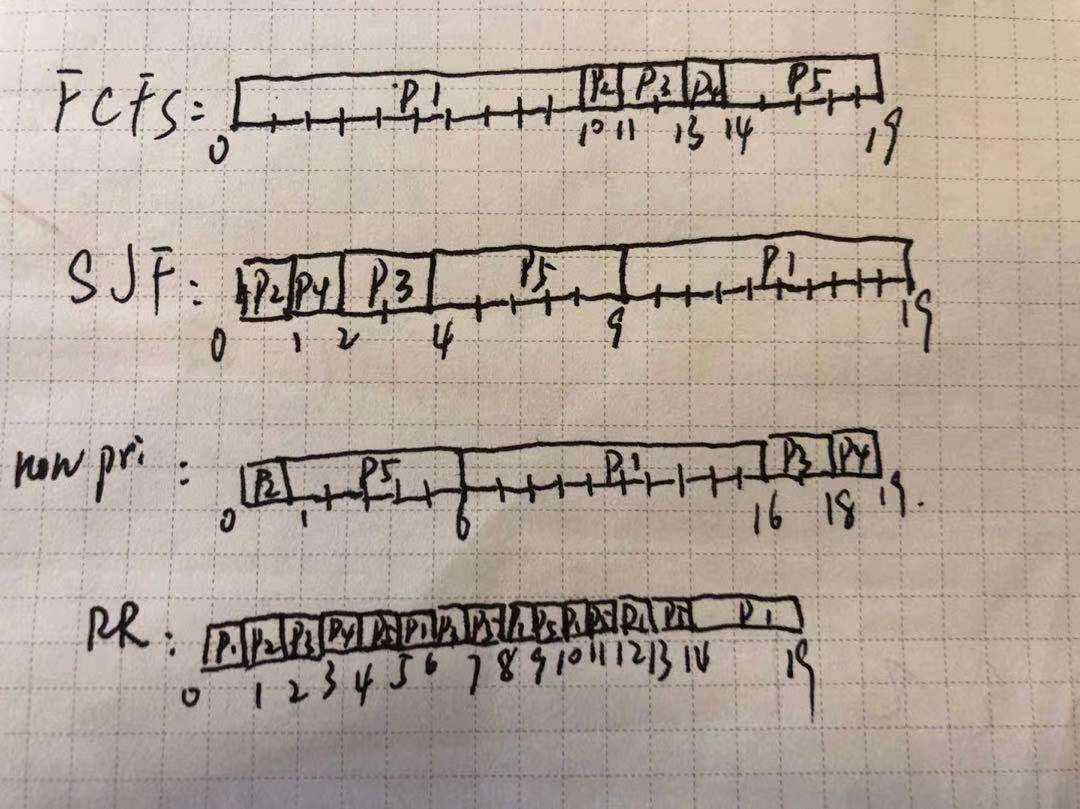 FCFS: P1 P2 P3 P4 P5
0 10 11 13 14 19
SJF: P2 P4 P3 P5 P1
0 1 2 4 9 19
non pri: P2 P5 P1 P3 P4
0 1 6 16 18 19.
RR: P1 P2 P3 P4 P5 P1 P3 P5 P1 P5 P1 P5 P1 P5 P1
0 1 2 3 4 5 6 7 8 9 10 11 12 13 14 19